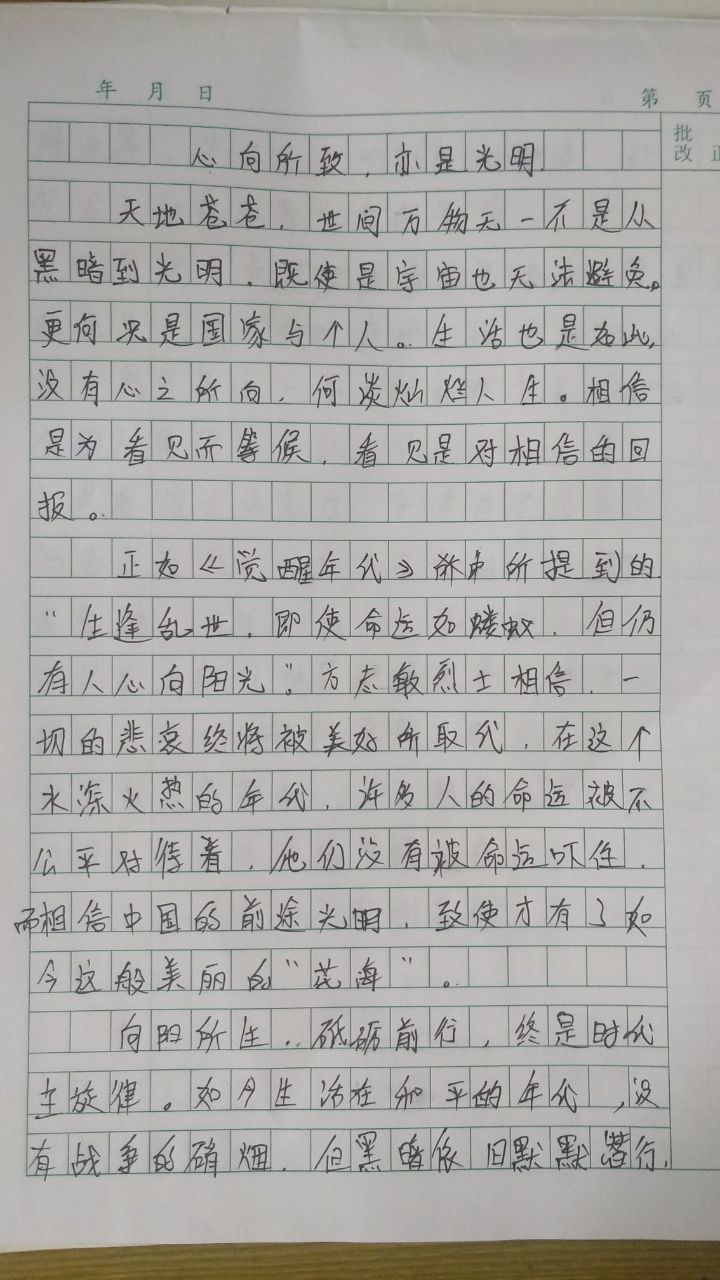 年 月 日
第 页
批
改 正
心向所致，亦是光明
天地苍苍，世间万物无一不是从
黑暗到光明，既使是宇宙也无法避免。
更何况是国家与个人。生活也是如此，
没有心之所向，何谈灿烂人生。相信
是为看见而等候，看见是对相信的回
报。
正如《觉醒年代》所提到的
“生逢乱世，即使命运如蝼蚁，但仍
有人心向阳光”。方志敏烈士相信，一
切的悲哀终将被美好所取代，在这个
水深火热的年代，许多人的命运被不
公平对待着，他们没有被命运吓住，
而相信中国的前途光明，致使才有了如
今这般美丽的“花海”。
向阳所生，砥砺前行，终是时代
主旋律。如今生活在和平的年代，没
有战争的硝烟，但黑暗依旧默默潜行，